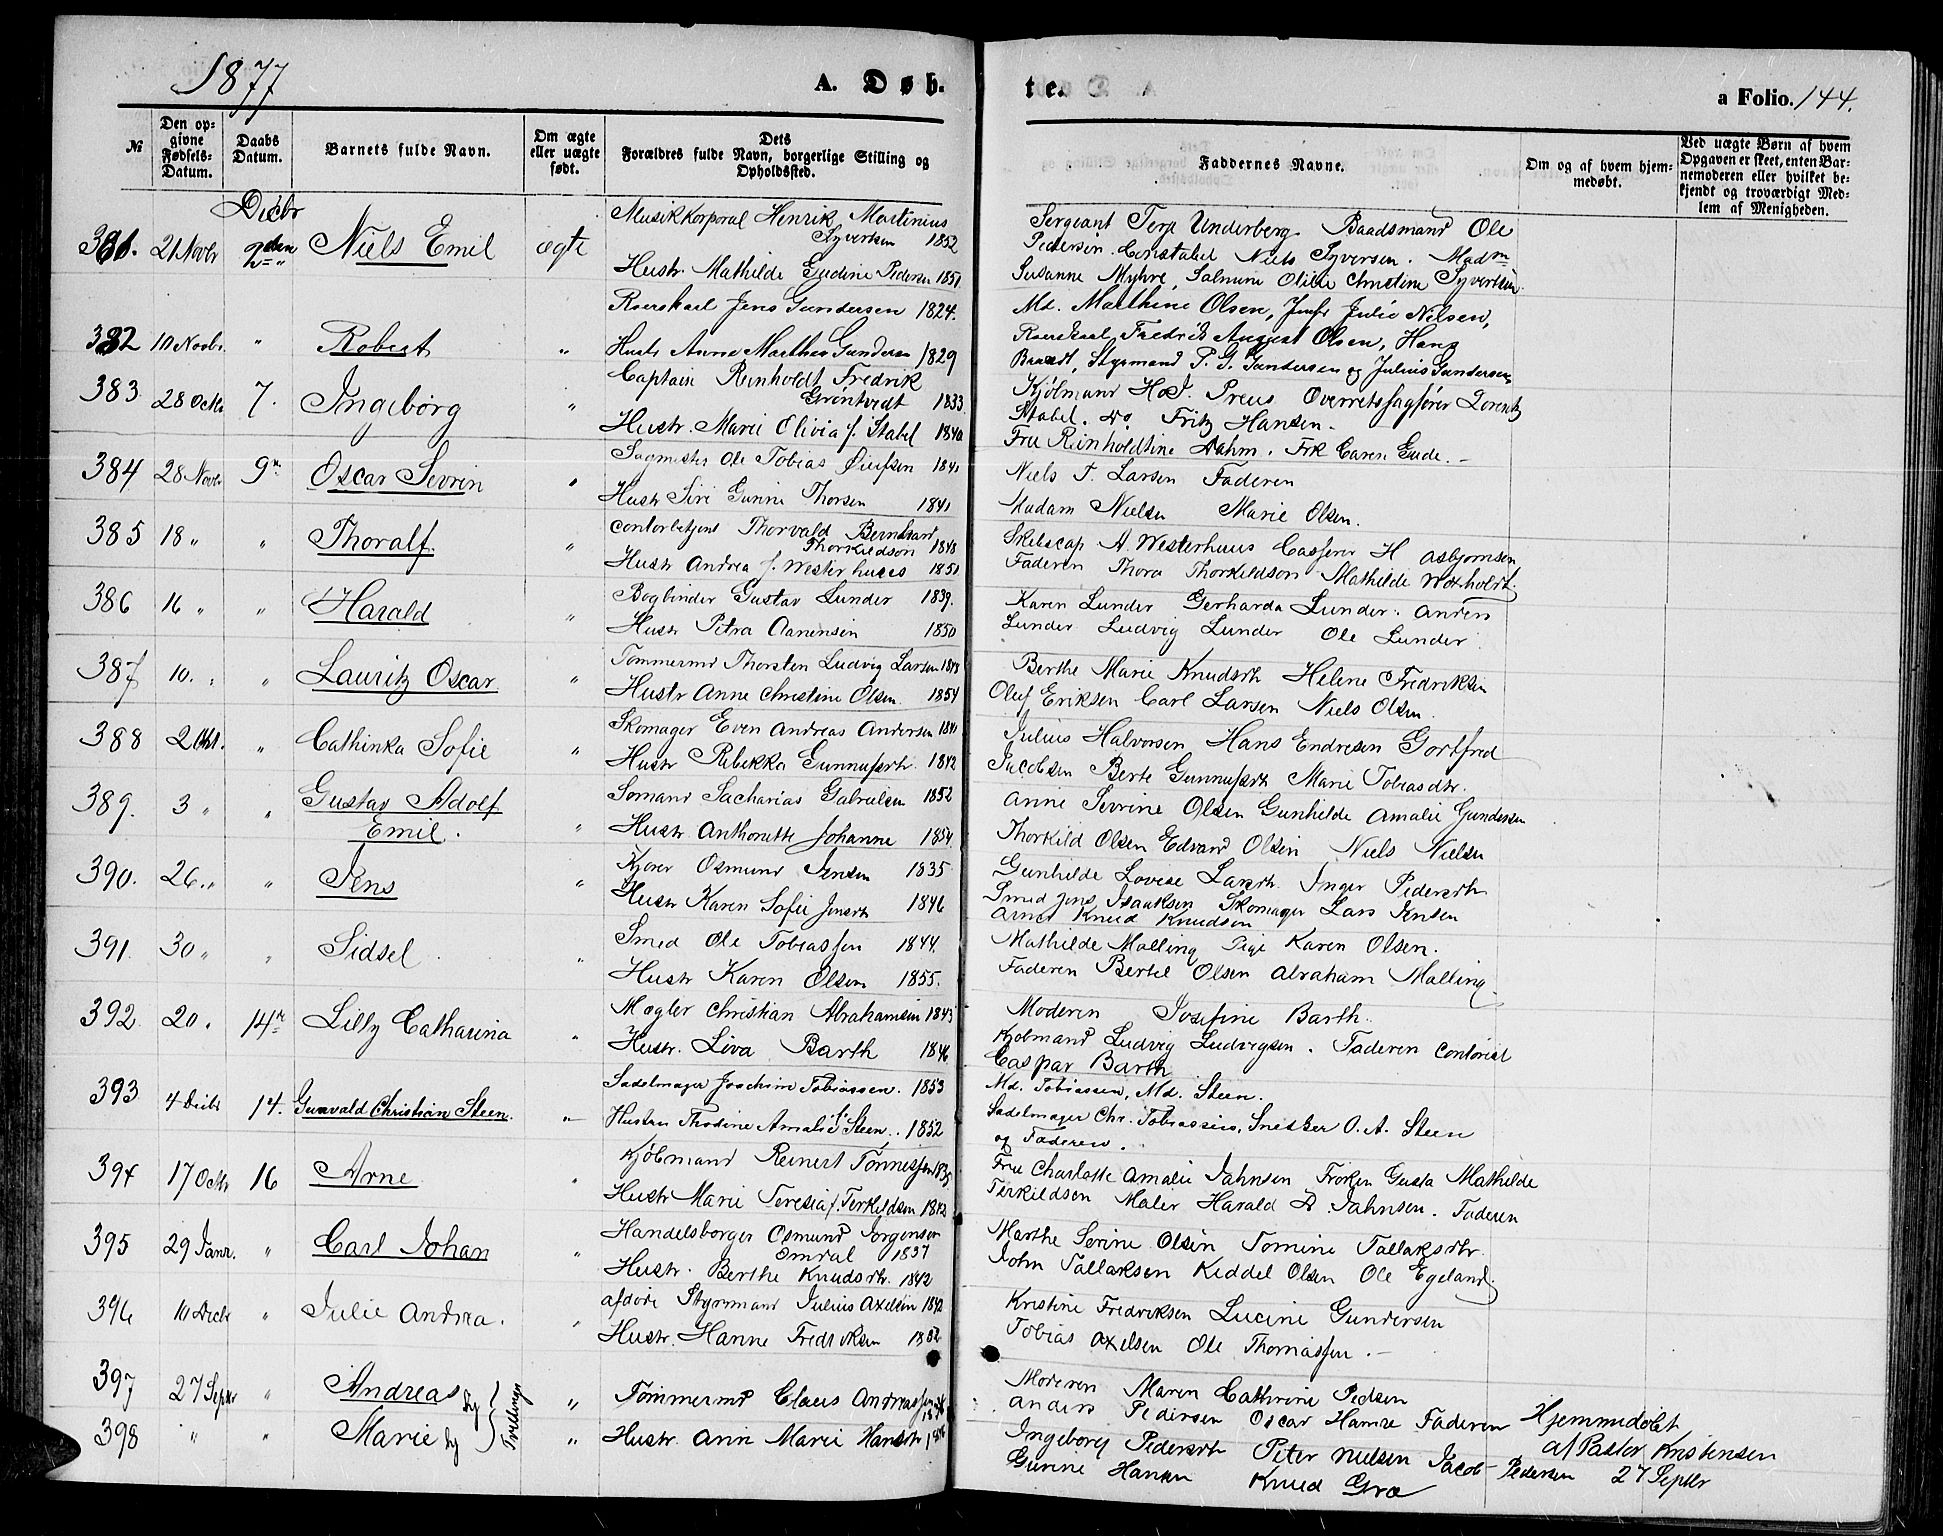 1877
A. Døb.
te.
a Folio. 144.
№
Den op-
givne
Fødsels-
Datum.
Daabs
Datum.
Barnets fulde Navn.
Om ægte
eller uægte
født.
Dets
Forældres fulde Navn, borgerlige Stilling og
Opholdssted.
Faddernes Navne.
Om og af hvem hjem-
medøbt.
Ved uægte Børn af hvem
Opgaven er skeet, enten Bar-
nemoderen eller hvilket be-
kjendt og troværdigt Med-
lem af Menigheden.
Decbr
381. 21 Novbr 2den Niels Emil ægte Musikkorporal Henrik Martinius
Syvertsen 1852
Hustr. Mathilde Gudine Pedersen 1851
Sergeant Terje Underberg. Baadsmand Ole
Pedersen. Constabel Niels Syversen. Madm
Susanne Myhre, Olilie Christine Syvertsen
382 10 Novbr. " Robert " Roerskarl Jens Gundersen 1824.
Hustr Anne Marthea Gundersen 1829
Md. Marthine Olsen, Jomfr Julie Nilsen,
Roerskarl Fredrik August Olsen, Hans
Brandt, Styrmand P. G. Gundersen og Julius Gundersen
383 28 Octbr. 7. Ingeborg " Captain Reinholdt Fredrik
Grøntvedt 1833
Hustr. Marie Olivia f. Stabel 1840
Kjølmand H. J. Preus Overretssagfører Lorentz
Stabel. Do Fritz Hansen.
Fru Reinholdtine Dahm. Frk Caren Gude.
384 28 Novbr 9de Oscar Sevrin " Sagmester Ole Tobias Olufsen 1841
Hustr Siri Gurine Thorsen 1841
Niels T. Larsen Faderen
Madam Nielsen Marie Olsen.
385 18 " " Thoralf. " Contorbetjent Thorvald Bernhard
Thorkildson 1848
Hustr Andrea f. Westerhuus 1851
Skibscap A. Westerhuus Casserer H Asbjørnsen
Faderen Thora Thorkildson Mathilde Woxholdt
386 16 " " Harald " Bogbinder Gustav Lunder 1839.
Hustr Petra Aanensen 1850
Karen Lunder Gerharda Lunder. Anders
Lunder Ludvig Lunder Ole Lunder
387 10. " " Lauritz Oscar " Tømmermd Thorsten Ludvig Larsen 1848
Hustr Anne Christine Olsen 1854
Berthe Marie Knudsdtr Helene Fredriksen
Oluf Eriksen Carl Larsen Niels Olsen.
388 2 Octbr. " Cathinka Sofie " Skomager Even Andreas Andersen 1841
Hustr Rebekka Gunnufsdtr. 1842
Julius Halvorsen Hans Endresen Gottfred
Jacobsen Berte Gunnufsdtr Marie Tobiasdtr.
389. 3 " " Gustav Adolf
Emil. " Sømand Sacharias Gabrielsen 1852
Hustr. Anthonette Johanne 1854
Anne Sevrine Olsen Gunhilde Amalie Gundersen
Thorkild Olsen Edvard Olsen Niels Nielsen
390. 26. " " Jens " Kjører Osmund Jensen 1835
Hustr Karen Sofie Jensdtr 1846
Gunhilde Lovise Larsdtr. Inger Pedersdtr
Smed Jens Isaaksen Skomager Lars Jensen
Arnes Knud Knudsen
391. 30 " " Sidsel. " Smed Ole Tobiassen 1844.
Hustr Karen Olsen 1855.
Mathilde Malling Pige Karen Olsen.
Faderen Bertel Olsen Abraham Malling
392 20. 14de Lilly Catharina " Mægler Christian Abrahamsen 1843
Hustr. Liva Barth 1846
Moderen Josefine Barth.
Kjøbmand Ludvig Ludvigsen. Faderen Contorist
Caspar Barth
393 4 Decbr 14. Gunvald Christian Steen. " Sadelmager Joachim Tobiassen. 1853
Hustru Thodine Amalie f. Steen. 1852
Md. Tobiassen, Md. Steen.
Sadelmager Chr. Tobiassen, Snedker O. A. Steen
og Faderen.
394 17 Octbr 16 Arne " Kjøbmand Reinert Tønnessen 1835
Hustr Marie Teresia f. Terkildsen 1842
Fru Charlotte Amalie Jahnsen Frøken Gusta Mathilde
Terkildsen Maler Harald D. Jahnsen. Faderen
395 29 Janr. " Carl Johan " Handelsborger Osmund Jørgensen
Omdal 1837
Hustr. Berthe Knudsdtr. 1842
Marthe Serine Olsen Tomine Tallaksdtr.
John Tallaksen Keddel Olsen Ole Egeland.
396 10 Decbr " Julie Andrea. " afdøde Styrmand Julius Axelsen 1842
Hustr. Hanne Fredriksen 1852
Kristine Fredriksen Lucine Gundersen
Tobias Axelsen Ole Thomassen.
397 27 Septbr " Andreas dg } Tvillinge " Tømmermd Claus Andreassen
Moderen Maren Cathrine Pedsen
Anders Pedersen Oscar Hansen Faderen Hjemmedøbt
398 " " Marie dg " Hustr. Ann Marie Hansdtr
af Pastor Kristensen
Ingeborg Pedersdtr Peter Nielsen Jacob Pedersen 27 Septbr
Gurine Hansen Knud Gro